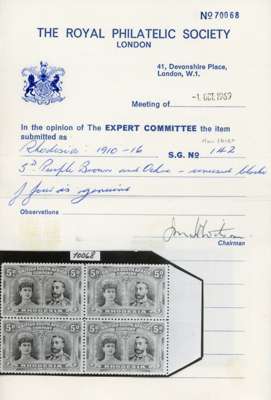 No 70068
THE ROYAL PHILATELIC SOCIETY
LONDON
41, Devonshire Place,
London, W.1.
-1 OCT. 1969
Meeting of
In the opinion of The EXPERT COMMITTEE the item
submitted as
Rhodesia: 1910-16 S.G. No 142
5d Purple Brown and Ochre - unused block
of four is genuine
Observations
Chairman
70068
5d 5d
RHODESIA RHODESIA
5d 5d
RHODESIA RHODESIA